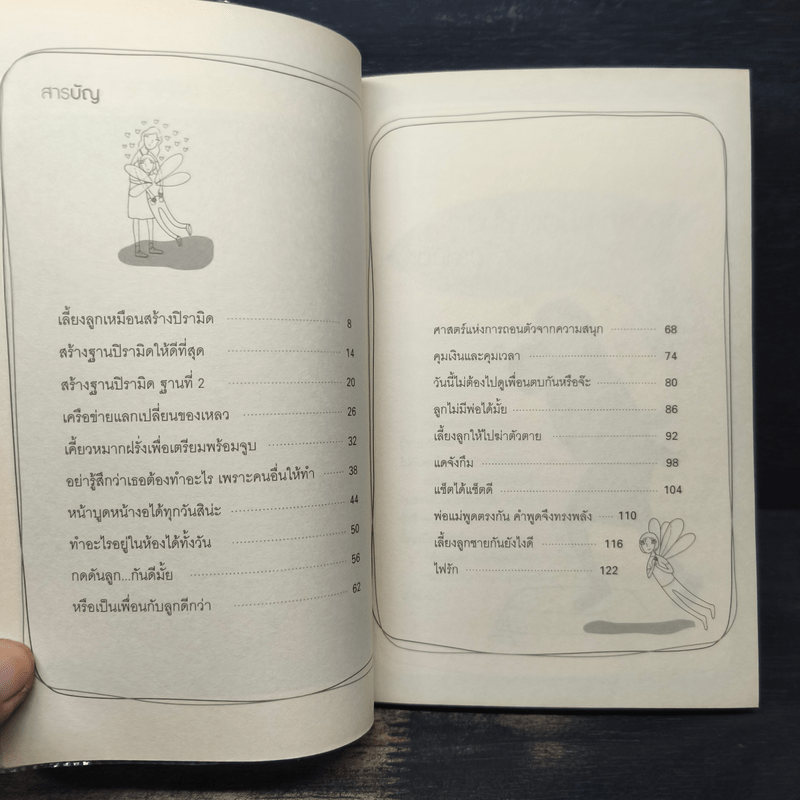 สารบัญ
เลี้ยงลูกเหมือนสร้างปิรามิด 8
สร้างฐานปิรามิดให้ดีที่สุด 14
สร้างฐานปิรามิด ฐานที่ 2 20
เครือข่ายแลกเปลี่ยนของเหลว 26
เคี้ยวหมากฝรั่งเพื่อเตรียมพร้อมจูบ 32
อย่ารู้สึกว่าเธอต้องทำอะไร เพราะคนอื่นให้ทำ 38
หน้าบูดหน้างอได้ทุกวันสิน่ะ 44
ทำอะไรอยู่ในห้องได้ทั้งวัน 50
กดดันลูก...กันดีมั้ย 56
หรือเป็นเพื่อนกับลูกดีกว่า 62
ศาสตร์แห่งการถอนตัวจากความสนุก 68
คุมเงินและคุมเวลา 74
วันนี้ไม่ต้องไปดูเพื่อนตบกันหรือจ๊ะ 80
ลูกไม่มีพ่อได้มั้ย 86
เลี้ยงลูกให้ไปฆ่าตัวตาย 92
แดจังกึม 98
แช็ตได้แช็ตดี 104
พ่อแม่พูดตรงกัน คำพูดจึงทรงพลัง 110
เลี้ยงลูกชายกันยังไงดี 116
ไฟรัก 122